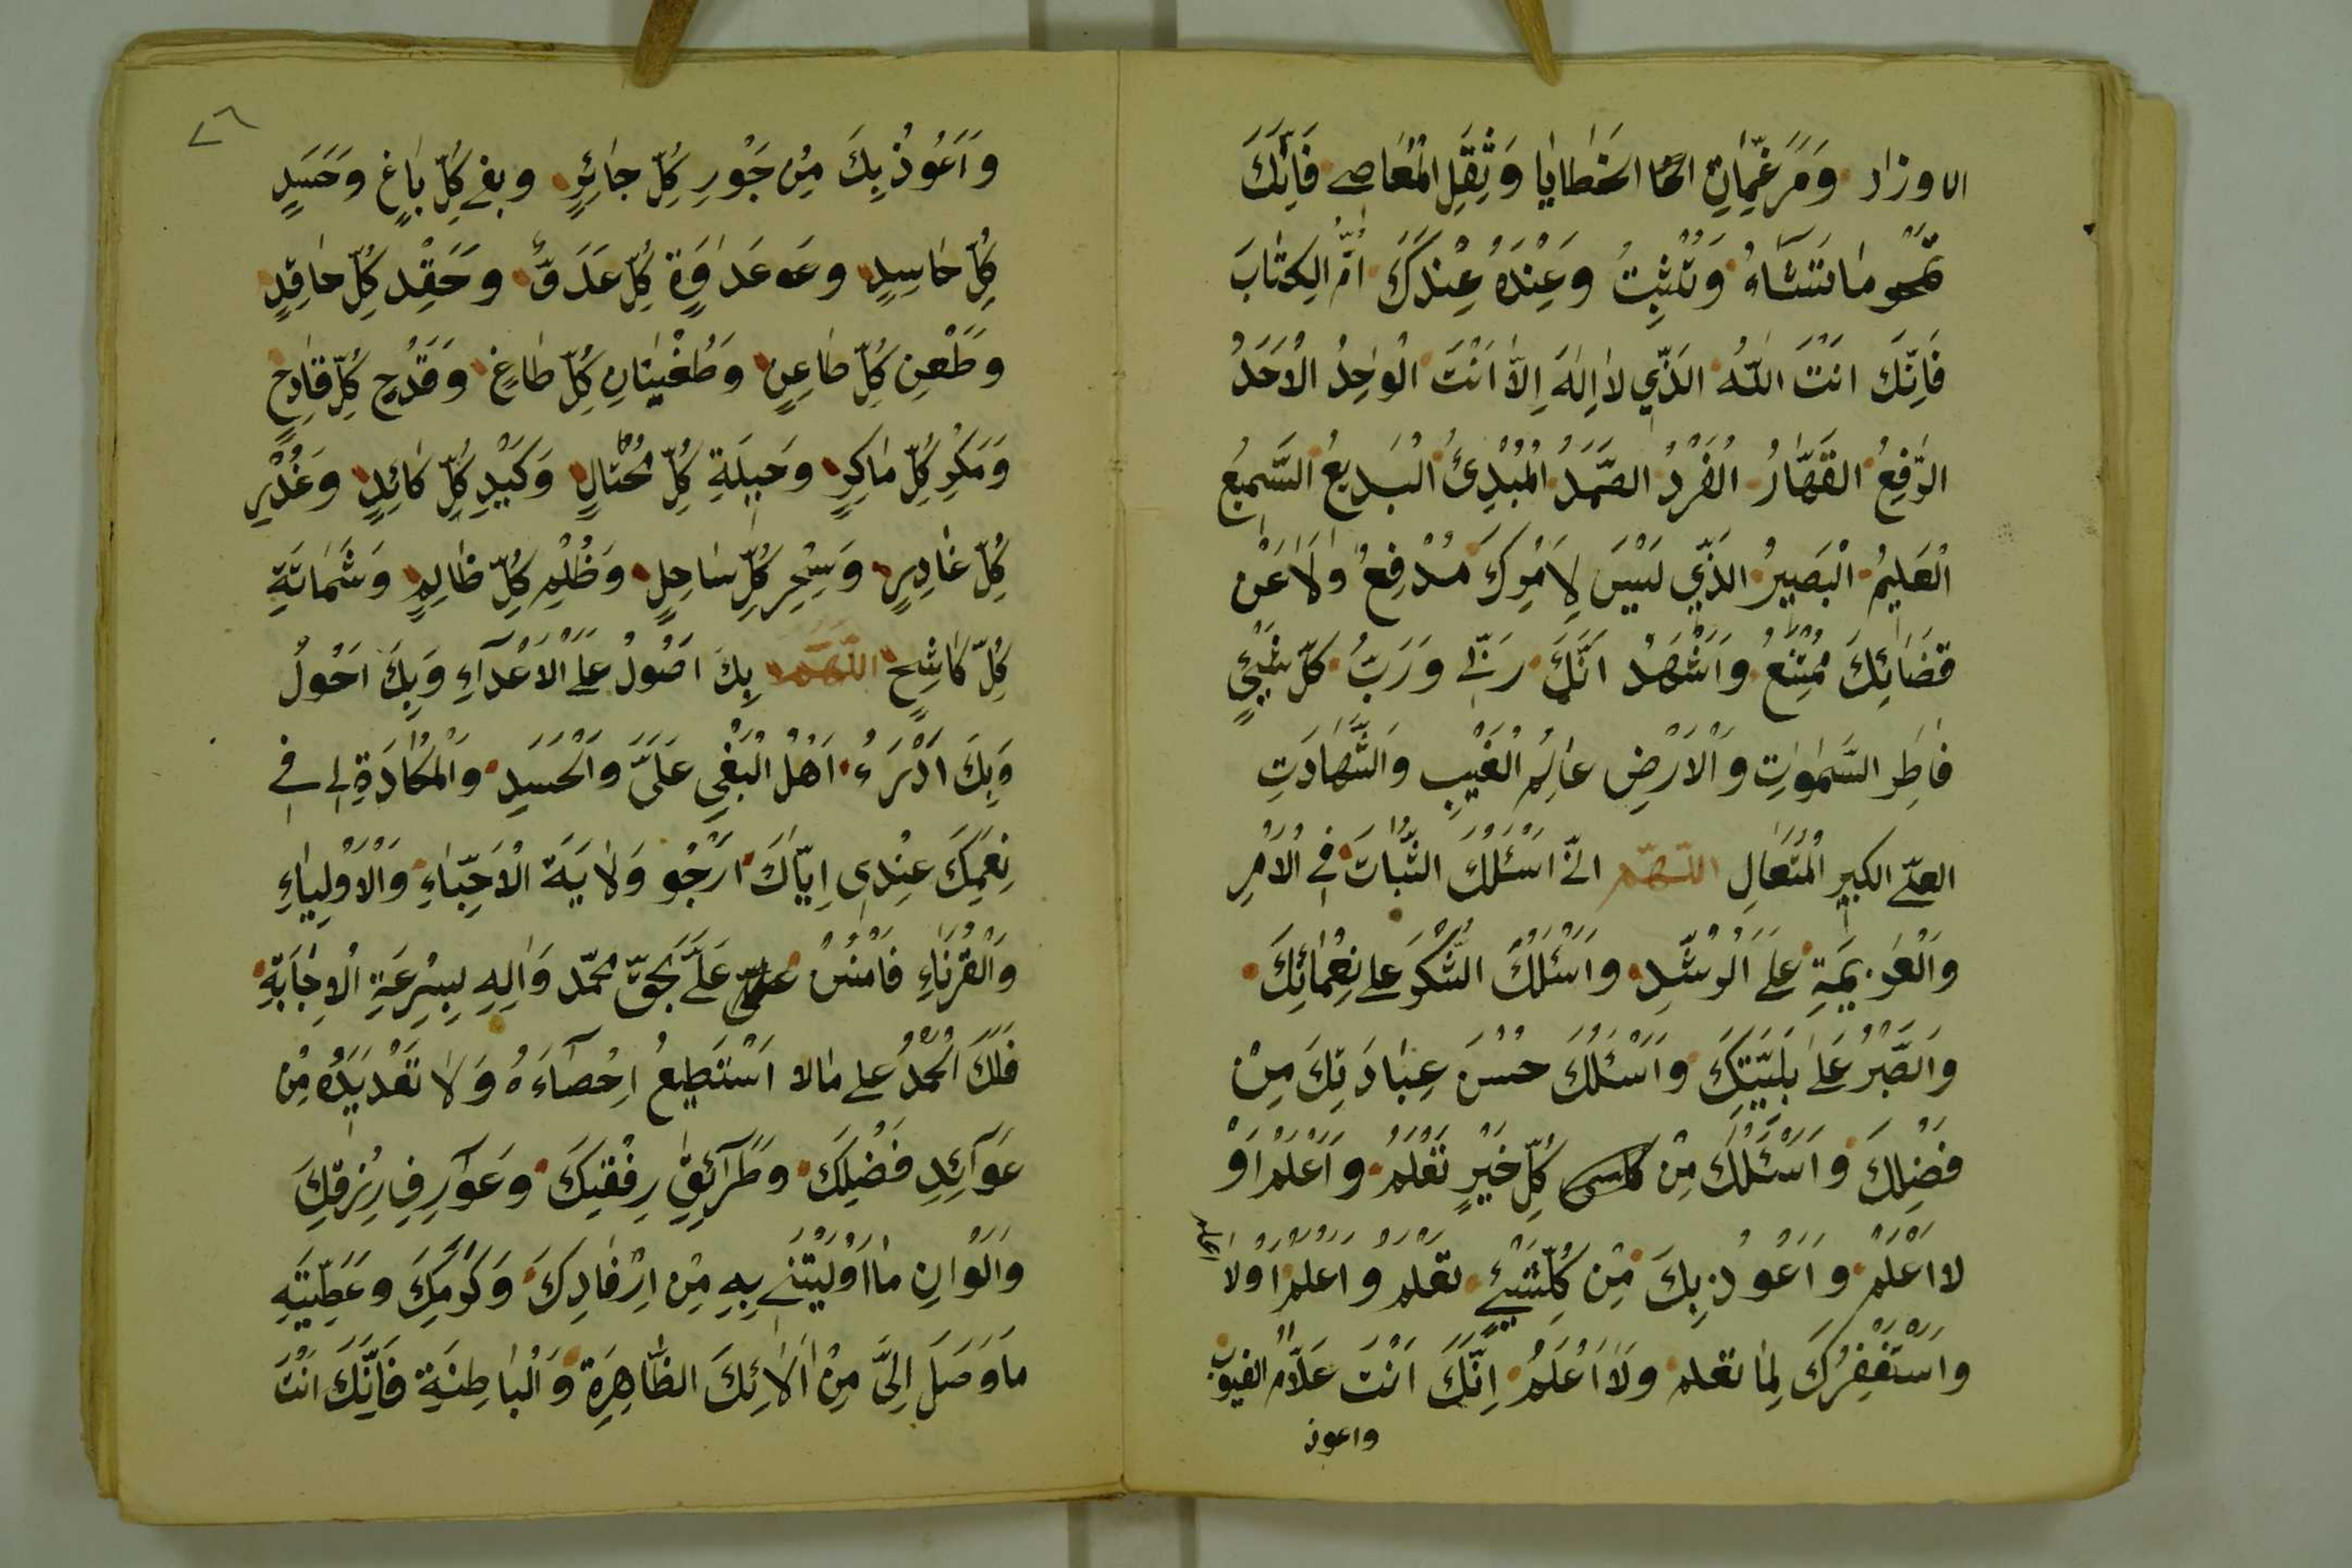 الاوزار وَمَرغَمَّاتِ الخَطَايَا وَثِقَلِ الْمَعَاصِے فَاِنَّكَ
تَمْحُو مَا تَشَآءُ وَتُثْبِتُ وَعِنْدَهُ عِنْدَكَ اُمُّ الِكتَابَ
فَاِنَّكَ اَنْتَ اللّٰهُ الَّذِّي لاَ اِلٰهَ اِلاَّ اَنْتَ الْوَاحِدُ الْاَحَدُ
الرَّفِعُ القَهَّارُ الْفَرْدُ الصَّمَدُ الْمُبْدِئُ الْبَدِيعُ السَّمِيعُ
الْعَلِيمُ الْبَصِيرُ الَّذِّي لَيْسَ لِاَمْرِكَ مُدْفِعٌ وَلَا عَنْ
قَضَائِكَ مُمْتَنِعُ وَاَشْهَدُ اَنَّكَ رَبّے وَرَبُّ كُلّ شَيْئٍ
فَاطِرِ السَّمٰوٰتِ وَالْاَرْضِ عَالِمُ الْغَيْبِ وَالشَّهَادَتِ
العلّے الكبيرِ الْمُتَعَالِ اللّهمّ انّے اَسْئَلُكَ الثَّبَاتَ فِے الْاَمْرِ
وَالْعَزِيمَةِ عَلَے الْرُشْدِ وَاَسْئَلُكَ الشُّكْرَ على نِعْمَائِكَ
وَالصَّبْرُ عَلَے بَلِيَّتِكَ وَاَسْئَلُكَ حُسْنَ عِبَادَتِكَ مِنْ
فَضْلِكَ وَاَسْئَلُكَ مِنْ كُلّ خَيْرٍ تَعْلَمُ وَاَعْلَمُ اَوْ
لاَ اَعْلَمُ وَاَعُوذُ بِكَ مِنْ كُلِّ شَيْئٍ تَعْلَمُ وَاَعْلَمُ اَوْلَا اعلم
وَاَسْتَغْفِرُكَ لِمَا تعلم وَلَا اَعْلَمُ اِنَّكَ اَنْتَ عَلاَّمُ الغيوب
واعوذ
٧٦
وَاَعُوذُ بِكَ مِنْ جَوْرِ كُلِّ جَائِرٍ وبغے كُلِّ بَاغٍ وَحَسَدٍ
كُلِّ حَاسِدٍ وعَدَاوَةِ كُلِّ عَدُوٍّ وحَقِدِ كُلِّ حَاقِدٍ
وَطَعْنِ كُلِّ طَاعِنٍ وَطُغْيَانِ كُلِّ طَاغٍ وَقَدْحِ كُلِّ قَادِحٍ
وَمَكْرِ كُلِّ مَاكِرٍ وَحِيلَةِ كُلِّ مُحْتَالٍ وَكَيْدِ كُلِّ كَائِدٍ وَغَدْرِ
كُلِّ غَادِرٍ وَسِحْرِ كُلِّ سَاحِلٍ وَظُلْمِ كُلِّ ظَالِمٍ وَشَمَاتَةِ
كُلِّ كَاشِحٍ اللّهمّ بِكَ اَصُولُ عَلَے الْاَعْدَآءِ وَبِكَ اَحُولُ
وَبِكَ اَدْرَءُ اَهْلُ الْبَغْيِ عَلَىَّ وَالْحَسَدِ وَالْمَكَادَةِ لِے فِے
نِعَمِكَ عِنْدِى اِيَّاكَ اَرْجُو وَلَايَةَ الْاَحِبَّاءِ وَالْاَوْلِيَاءِ
وَالْقُرَنَاءِ فَامْنُنْ عَلَىَّ بحَقّ محمّد وَالِهِ بِسِرْعَةِ الْاِجَابَةِ
فَلَكَ الْحَمْدُ على مالا اَسْتَطِيعُ اِحْصَآءَهُ وَلَا تَعْدِيدَهُ مِنْ
عَوَآئِدِ فَضْلِكَ وطَرَآئِقِ رِفْقِكَ وعَوَارِفِ رِزقِكَ
وَاَلْوَانِ مَا اَوْلَيْتَنِے بِهِ مِنْ اِرْفَادِكَ وَكَرَمِكَ وعَطِيَّتِهِ
مَا وَصَلَ اِلَىَّ مِنْ اَلٰائِكَ الظَّاهِرَةِ وَالْبَاطِنَةِ فَاِنَّكَ اَنْتَ